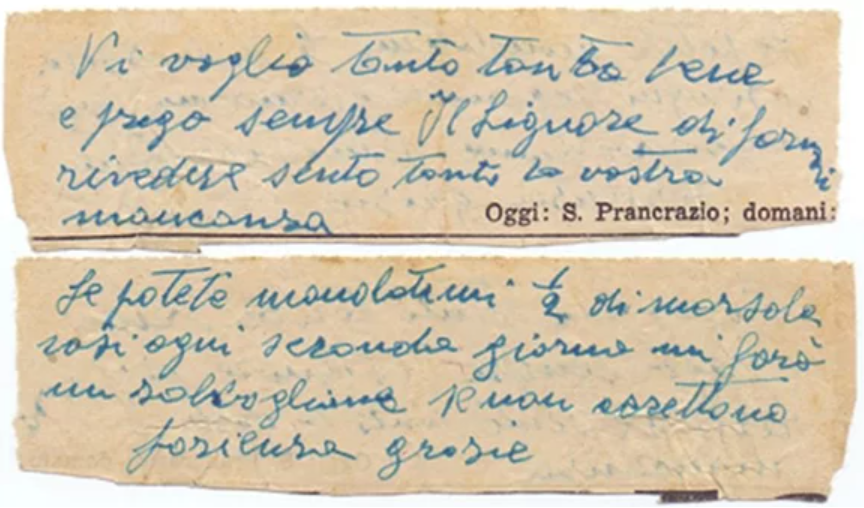 Vi voglio tanto tanto bene
e prego sempre Il Signore di farmi
rivedere sento tanto la vostra
mancanza
Oggi: S. Prancrazio; domani:
Se potete mandatemi 1/2 di marsala
così ogni seconda giorno mi farò
un zabbaglione se non accettano
pazienza grazie